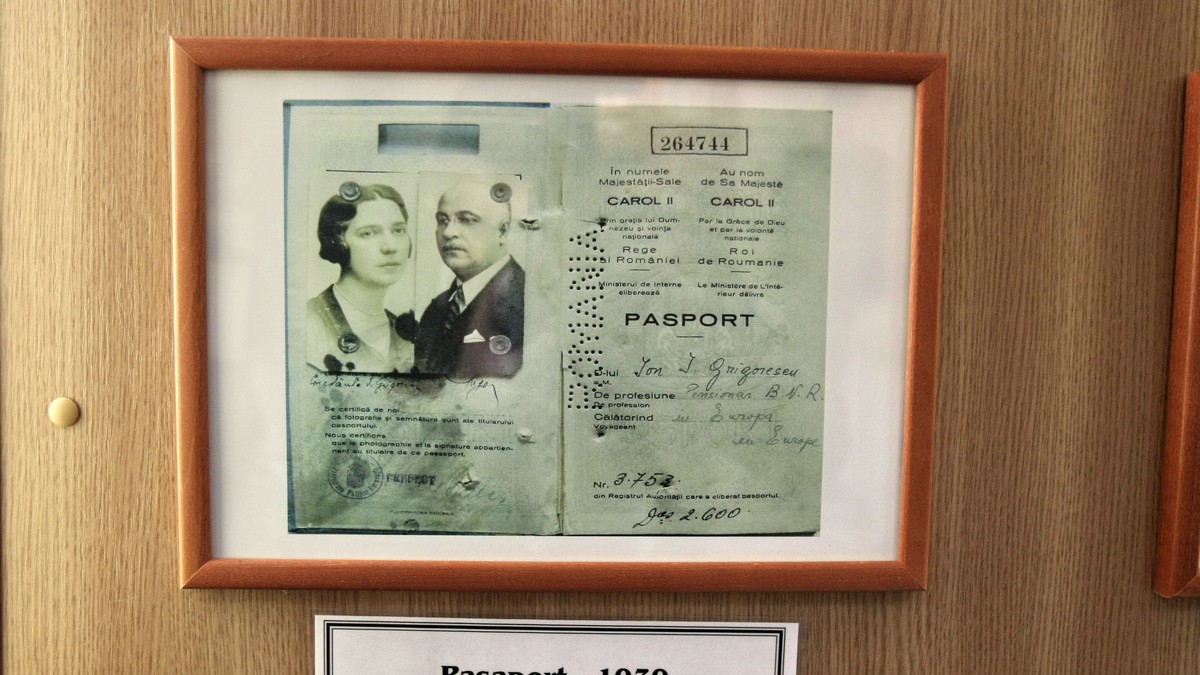 264744
În numele
Majestăţii-Sale
CAROL II
Prin graţia lui Dum-
nezeu şi voinţa
naţională
Rege
al României
Ministerul de Interne
eliberează
Au nom
de Sa Majesté
CAROL II
Par la Grâce de Dieu
et par la volonté
nationale
Roi
de Roumanie
Le Ministère de L'Inté-
rieur délivre
PASPORT
ROMANIA
D-lui Ion I. Grigorescu
De profesiune Pensionar B.N.R.
De profession
Călătorind în Europa
Voyageant en Europe
Nr. 3.753.
din Registrul Autorităţii care a eliberat paşportul.
2.600
Constanţa I. Grigorescu
Se certifică de noi
că fotografie şi semnătura sunt ale titularului
paşportului.
Nous certifions
que la photographie et la signature appartien-
nent au titulaire de ce passeport.
PREFECT
Paşaport - 1939